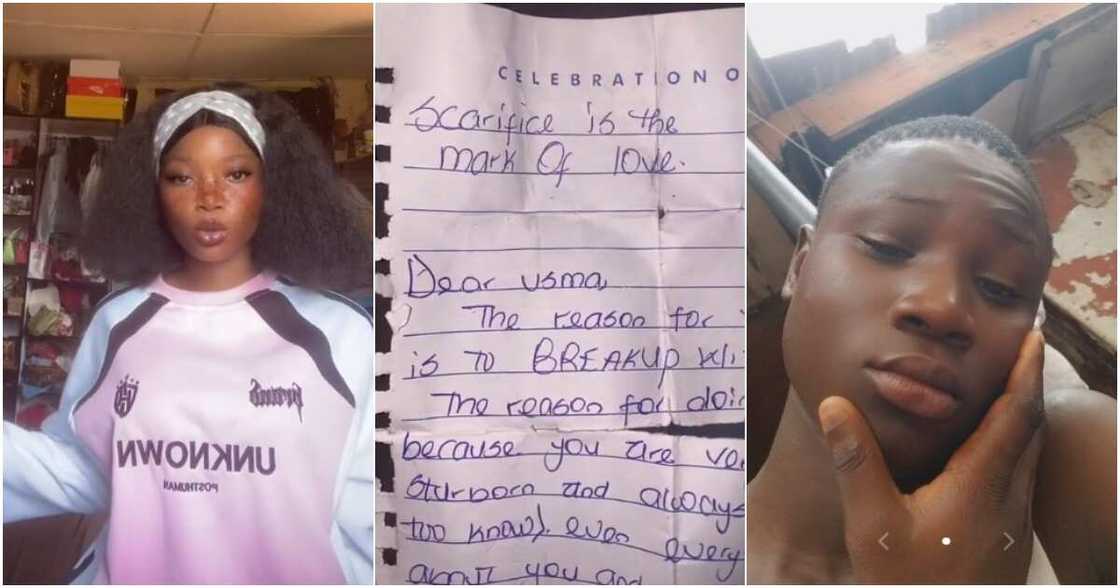 UNKNOWN
POSTHUMAN
CELEBRATION O
Scarifice is the
mark Of love.
Dear usma,
The reason for
is to BREAKUP wi
The reason for doin
because you are ve
Sturborn and always
too know). even every
about you and